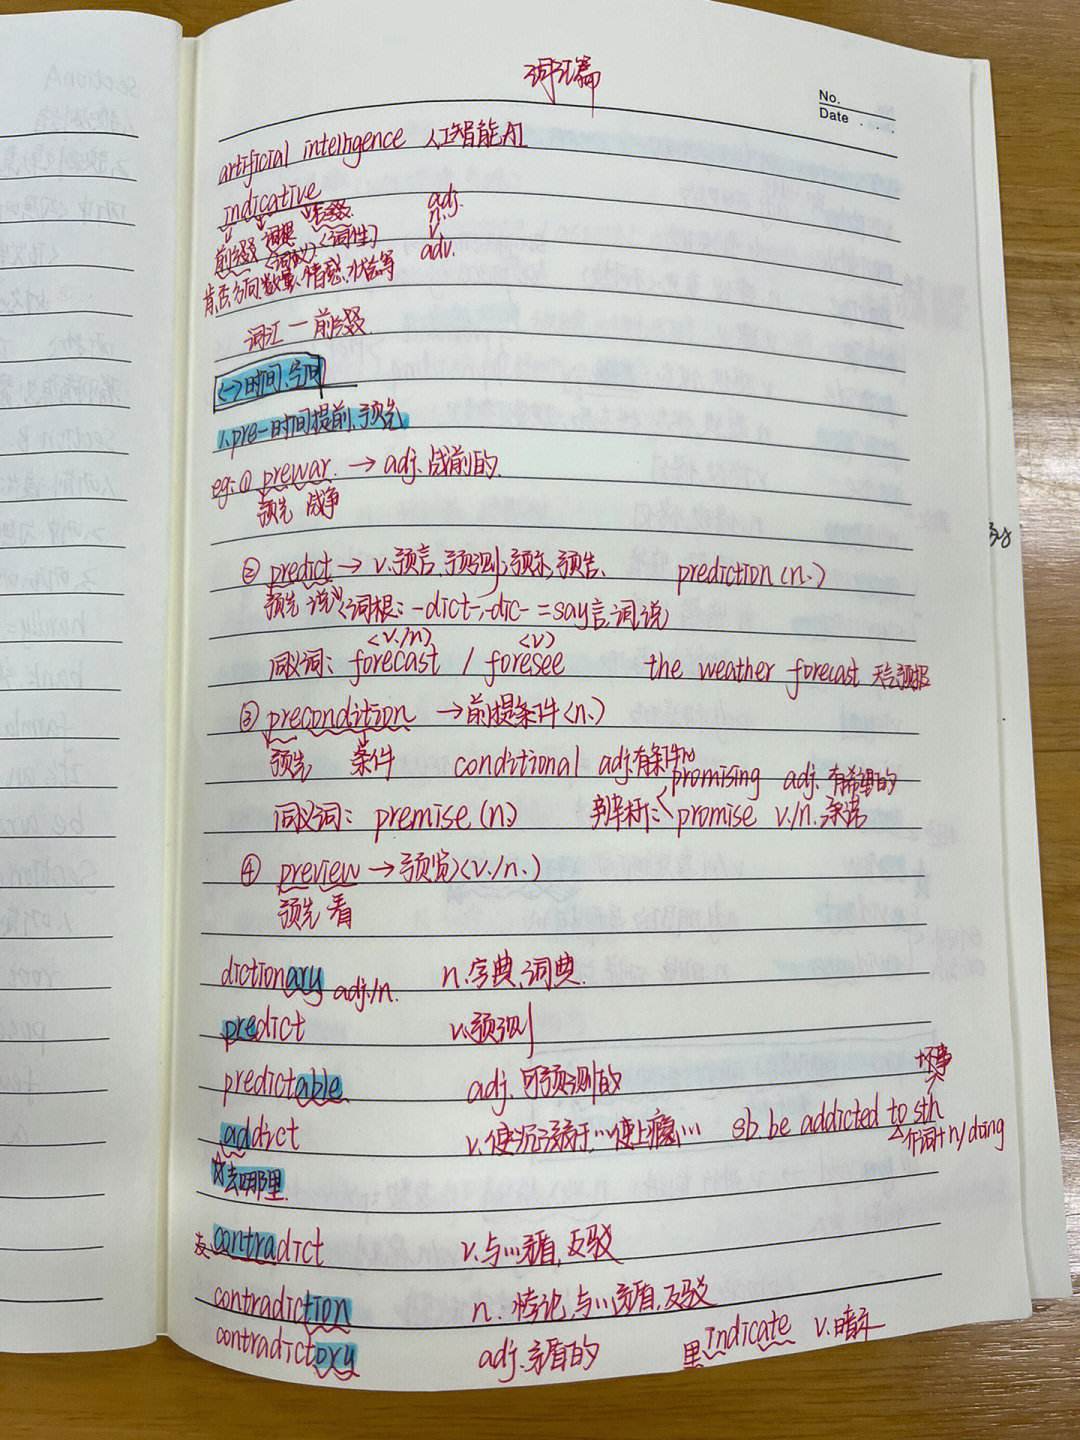 词汇篇
No.
Date . .
artificial intelligence 人工智能AI
indicative
前缀 词根 后缀 adj.
<词义> <词性> n.
肯否、方向、数量、情感、状态等 adv.
词汇一前缀
<一>时间、空间
1.pre-时间提前、预先
eg:① prewar. → adj. 战前的
预先 战争
② predict → v.预言,预测,预示,预告、 prediction (n.)
预先 说 <词根: -dict-,-dic- =say言,词,说>
<v./n> <v>
同义词: forecast / foresee the weather forecast 天气预报
③ precondition → 前提条件<n.>
预先 条件 conditional adj.有条件的
promising adj. 有希望的
同义词: premise (n) 辨析:< promise v./n. 承诺
④ preview → 预览<v./n.>
预先 看
dictionary adj./n. n.字典,词典.
predict v.预测
predictable adj. 可预测的
坏事
addict v.使沉溺于…使上瘾… sb. be addicted to sth
介词+n/doing
去哪里.
反 contradict v.与…矛盾,反驳
contradiction n. 悖论,与…矛盾,反驳
contradictory adj.矛盾的 里 indicate v.暗示